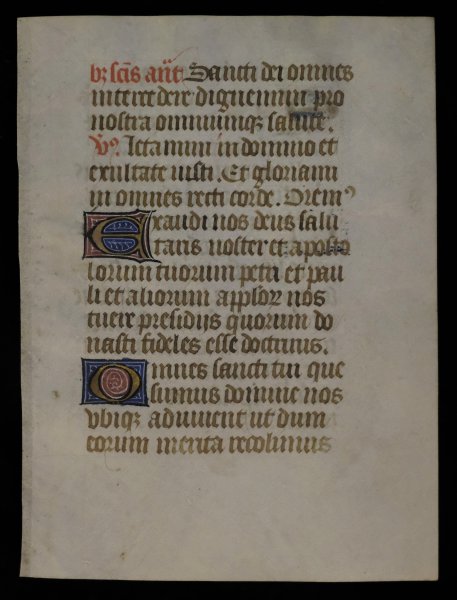 bz scīs añt Sancti dei omnes
intercedere dignemini pro
nostra omniumqz salute.
V9. Letamini in domino et
exultate iusti. Et gloriami
ni omnes recti corde. Orem9
Exaudi nos deus salu
taris noster et aposto
lorum tuorum petri et pau
li et aliorum applorz nos
tuere presidijs quorum do
nasti fideles esse doctrinis.
Omnes sancti tui que
sumus domine nos
vbiqz adiuuent ut dum
eorum merita recolimus